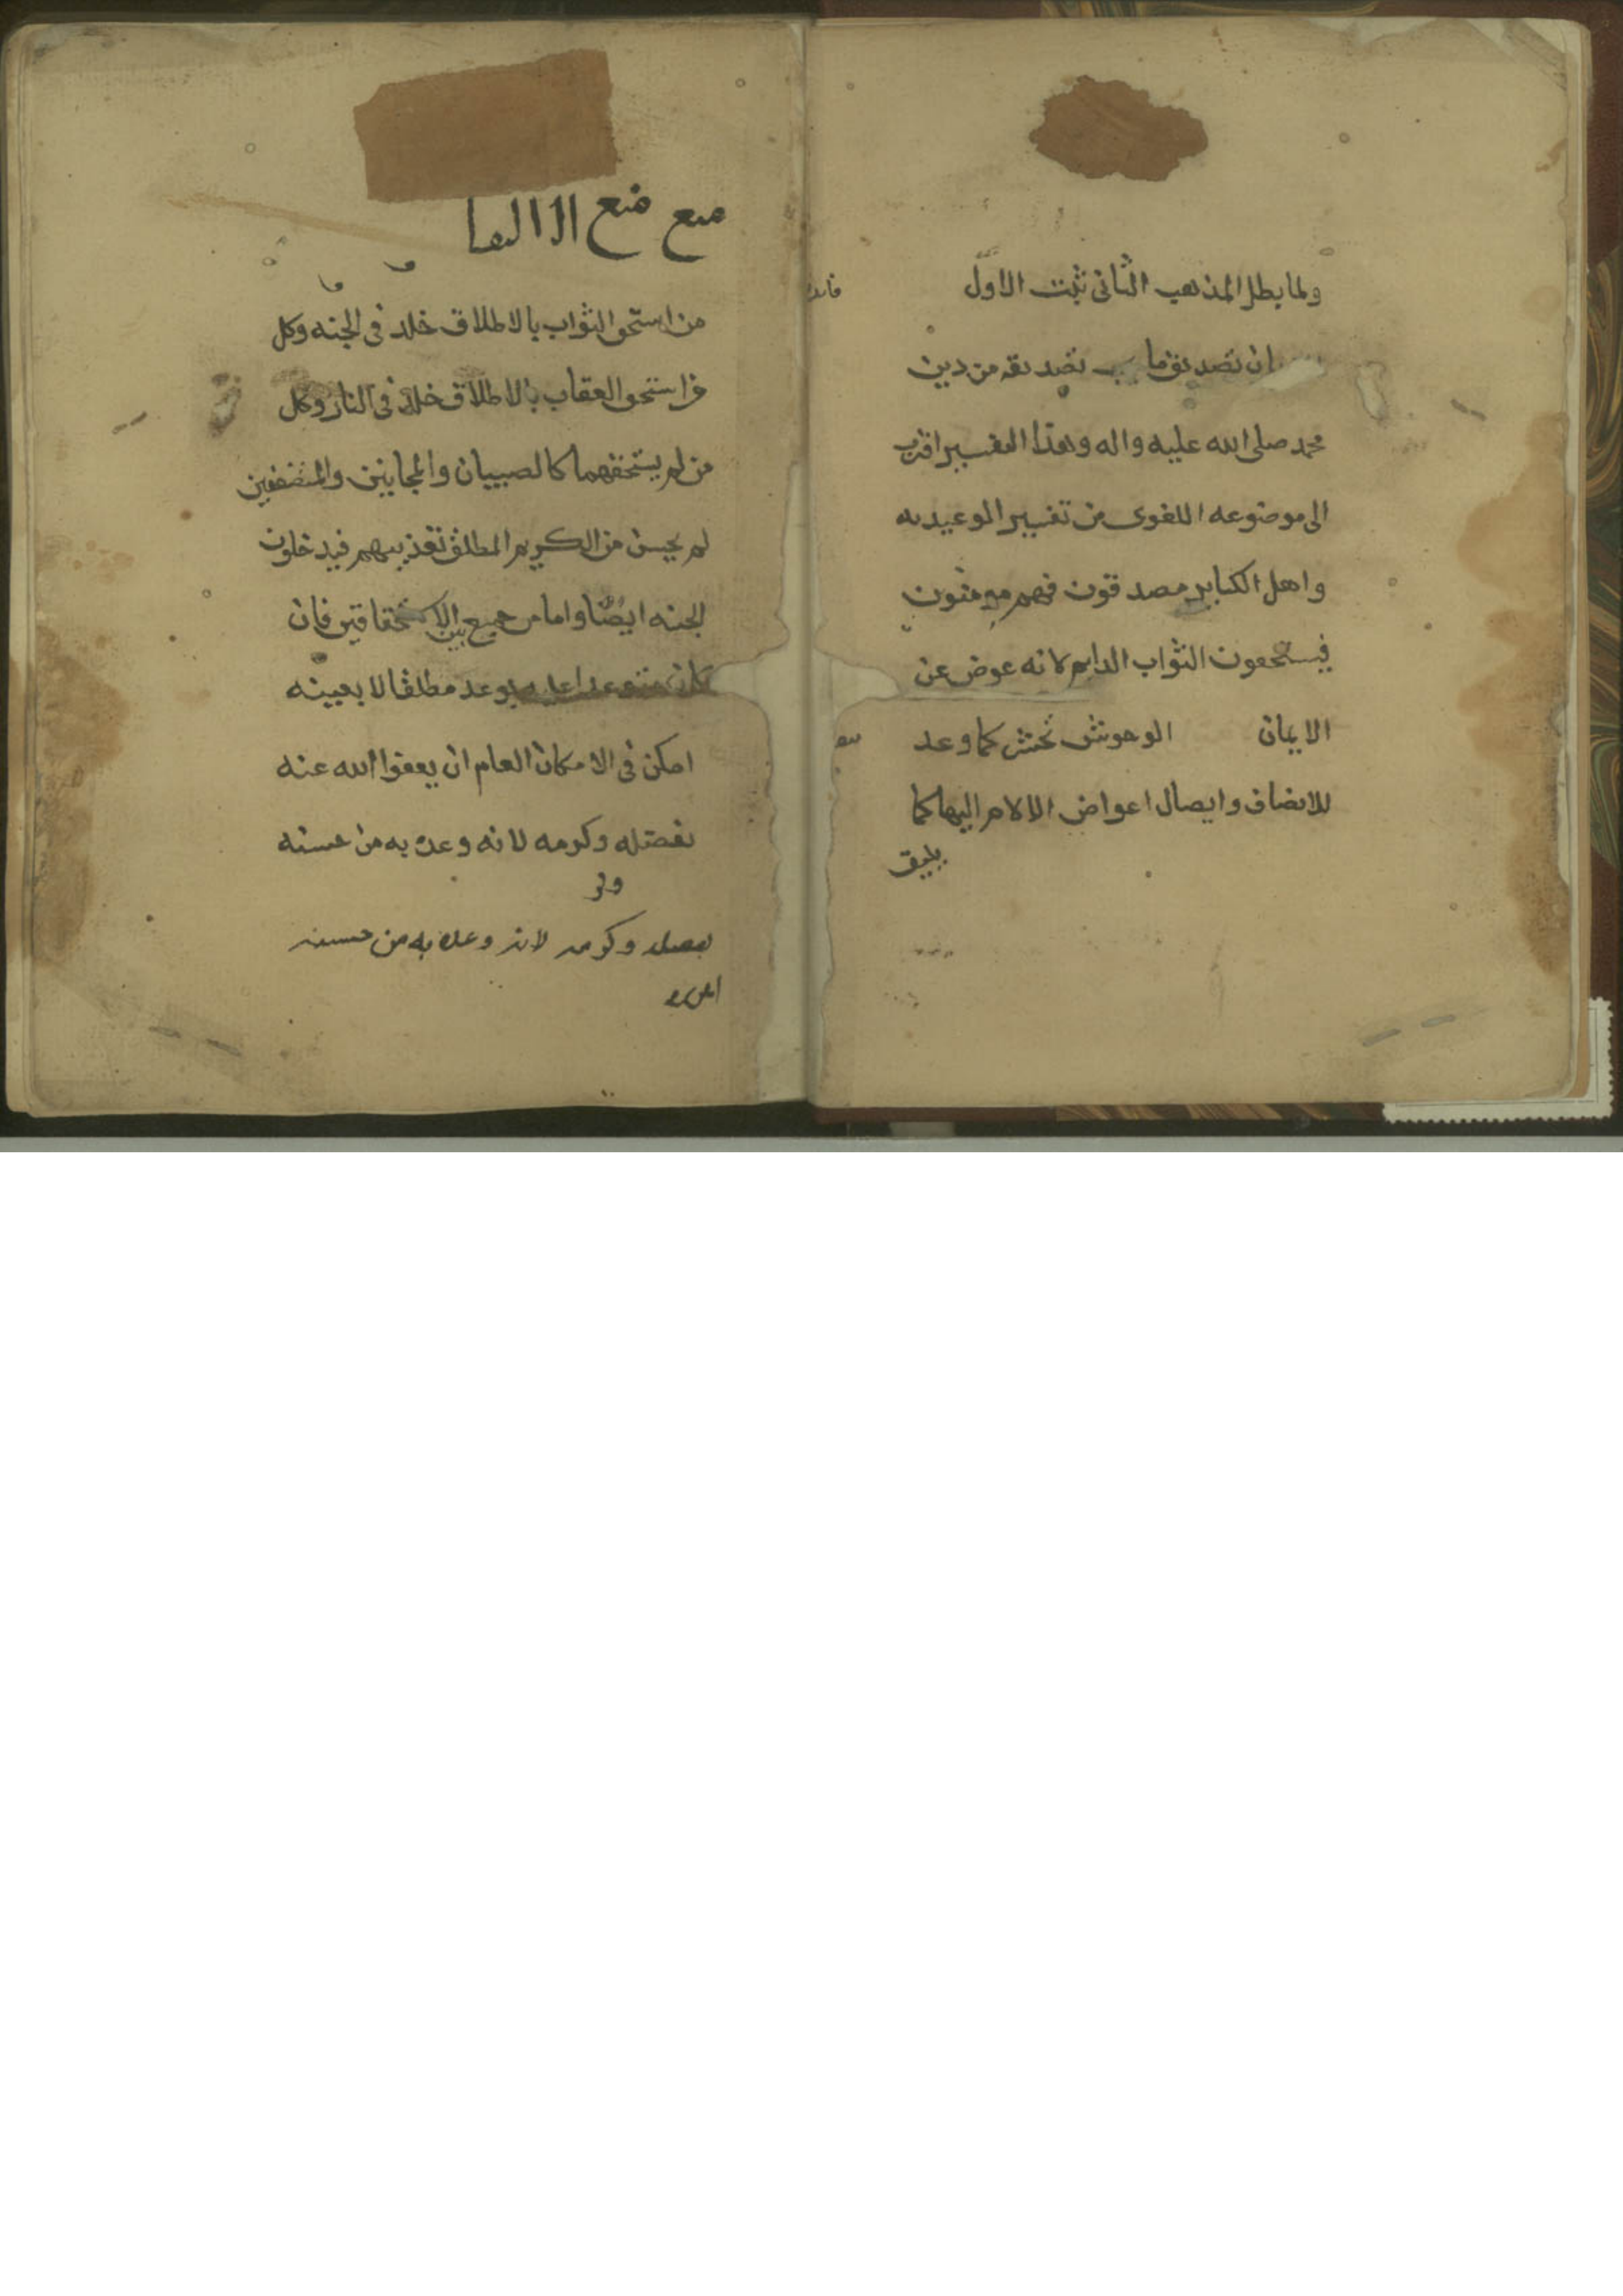 ولما بطل المذهب الثانى ثبت الاوّل
ان تصديق ما تصديقه من دين
محمد صلى الله عليه واله وهذا التفسير اقرب
الى موضوعه اللغوى من تفسير الوعيديه
واهل الكباير مصدقون فهم مومنون
فيستحقون الثواب الدايم لانه عوض عن
الايمان الوحوش تحشر كما وعد
للانصاف وايصال اعواض الالام اليها كما
يليق
منع منع
من استحق الثواب بالاطلاق خلد فى الجنه وكل
من استحق العقاب بالاطلاق خلد فى النار وكل
من لم يستحقهما كالصبيان والمجانين والمستضعفين
لم يحسن من الكريم المطلق تعذيبهم فيدخلون
الجنه ايضًا واما من جمع بين الاستحقاقين فان
كان بوعد مطلقا لا بعينه
امكن فى الامكان العام ان يعفوا الله عنه
بفضله وكرمه لانه وعد به من حسنه
بفضله وكرمه لانه وعده به من حسنه